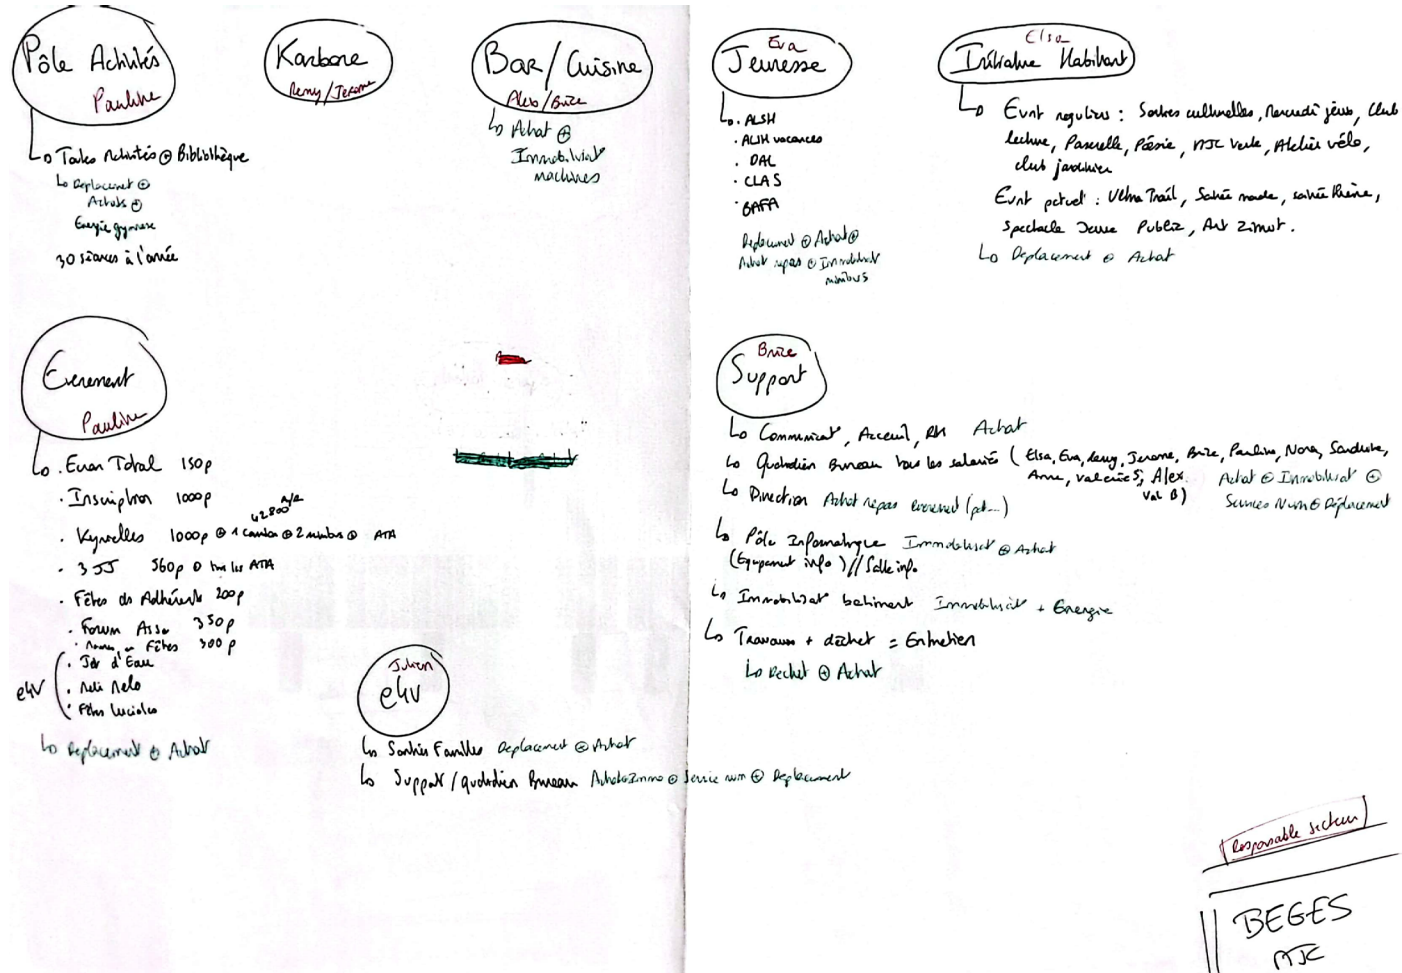 Pôle Activités
Pauline
Toutes Activités ⊕ Bibliothèque
Déplacement ⊕
Achats ⊕
Energie gymnase
30 séances à l'année
Karbone
Remy/Jerome
Bar/Cuisine
Alex/Brize
Achat ⊕
Immobilisat
machines
Eva
Jeunesse
ALSH
ALSH vacances
DAL
CLAS
BAFA
Déplacement ⊕ Achat ⊕
Achat repas ⊕ Immobilisat
minibus
Elsa
Initiative Habitant
Evnt reguliers : Soirées culturelles, Mercredi jeux, Club
lecture, Passerelle, Poésie, MJC Verte, Atelier vélo,
club jardinier
Evnt ponctuel : Ultra Trail, Soirée monde, soirée thème,
Spectacle Jeune Public, Art Zimut.
Déplacement ⊕ Achat
Evenement
Pauline
Evan Total 150p
Inscription 1000p
42800 A/R
Kyrielles 1000p ⊕ 1 camion ⊕ 2 minibus ⊕ ATA
3 JJ 560p ⊕ tous les ATA
Fêtes des Adhérents 200p
Forum Asso 350p
en Fêtes 300p
e4v
Jeu d'Eau
Méli Mélo
Fêtes Lucioles
Déplacement ⊕ Achat
Julien
e4v
Sorties Familles Déplacement ⊕ Achat
Support/quotidien Bureau Achat⊕Immo ⊕ Service num ⊕ Déplacement
Brize
Support
Communicat, Acceuil, RH Achat
Quotidien Bureau tous les salariés (Elsa, Eva, Remy, Jerome, Brize, Pauline, Nora, Sandrine,
Anne, Valérie S, Alex
Val B)
Achat ⊕ Immobilisat ⊕
Services Num ⊕ Déplacement
Direction Achat repas evenement (pot...)
Pôle Informatique Immobilisat ⊕ Achat
(Equipement info) // Salle info
Immobilisat batiment Immobilisat + Energie
Travaux + déchet = Entretien
Dechet ⊕ Achat
Responsable secteur
BEGES
MJC